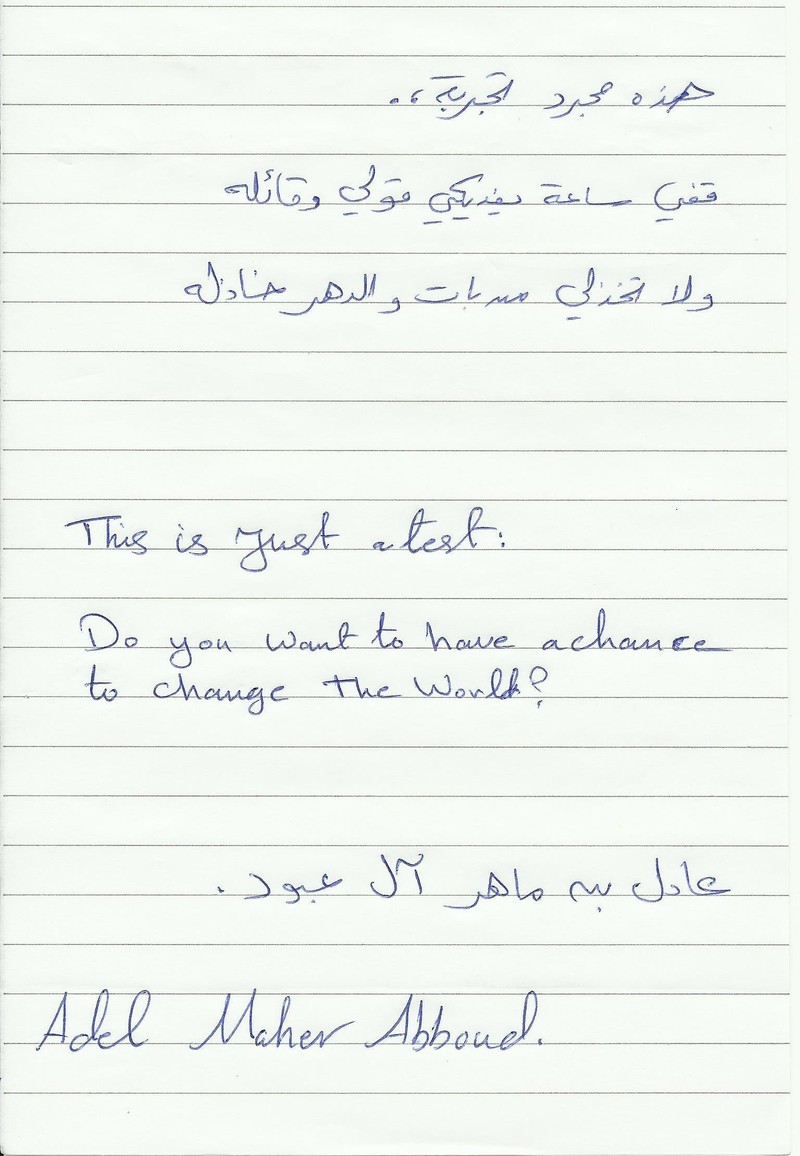 هذه مجرد تجربة،.
قفي ساعة يفديكي قولي وقائله
ولا تخذلي من بات والدهر خاذله
This is Just a test:
Do you want to have a chance
to change The World?
عادل بن ماهر آل عبود.
Adel Maher Abboud.